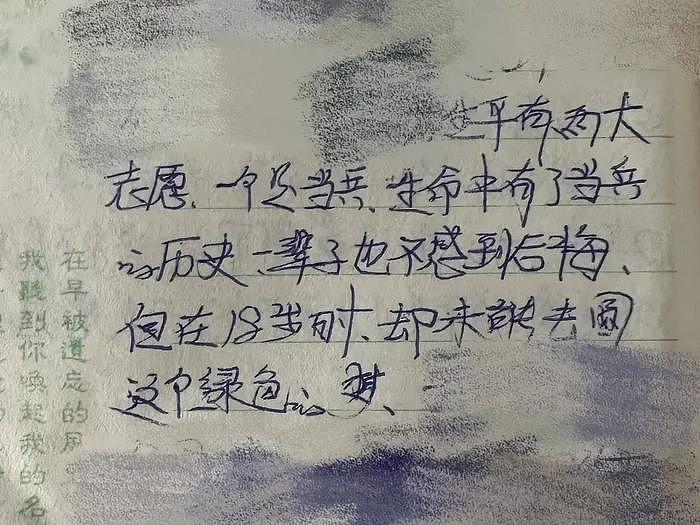 生平有两大
志愿、一个是当兵、生命中有了当兵
的历史、一辈子也不感到后悔、
但在18岁时、却未能去圆
这个绿色的梦、
在早被遗忘的
我聽到你喚起我的名